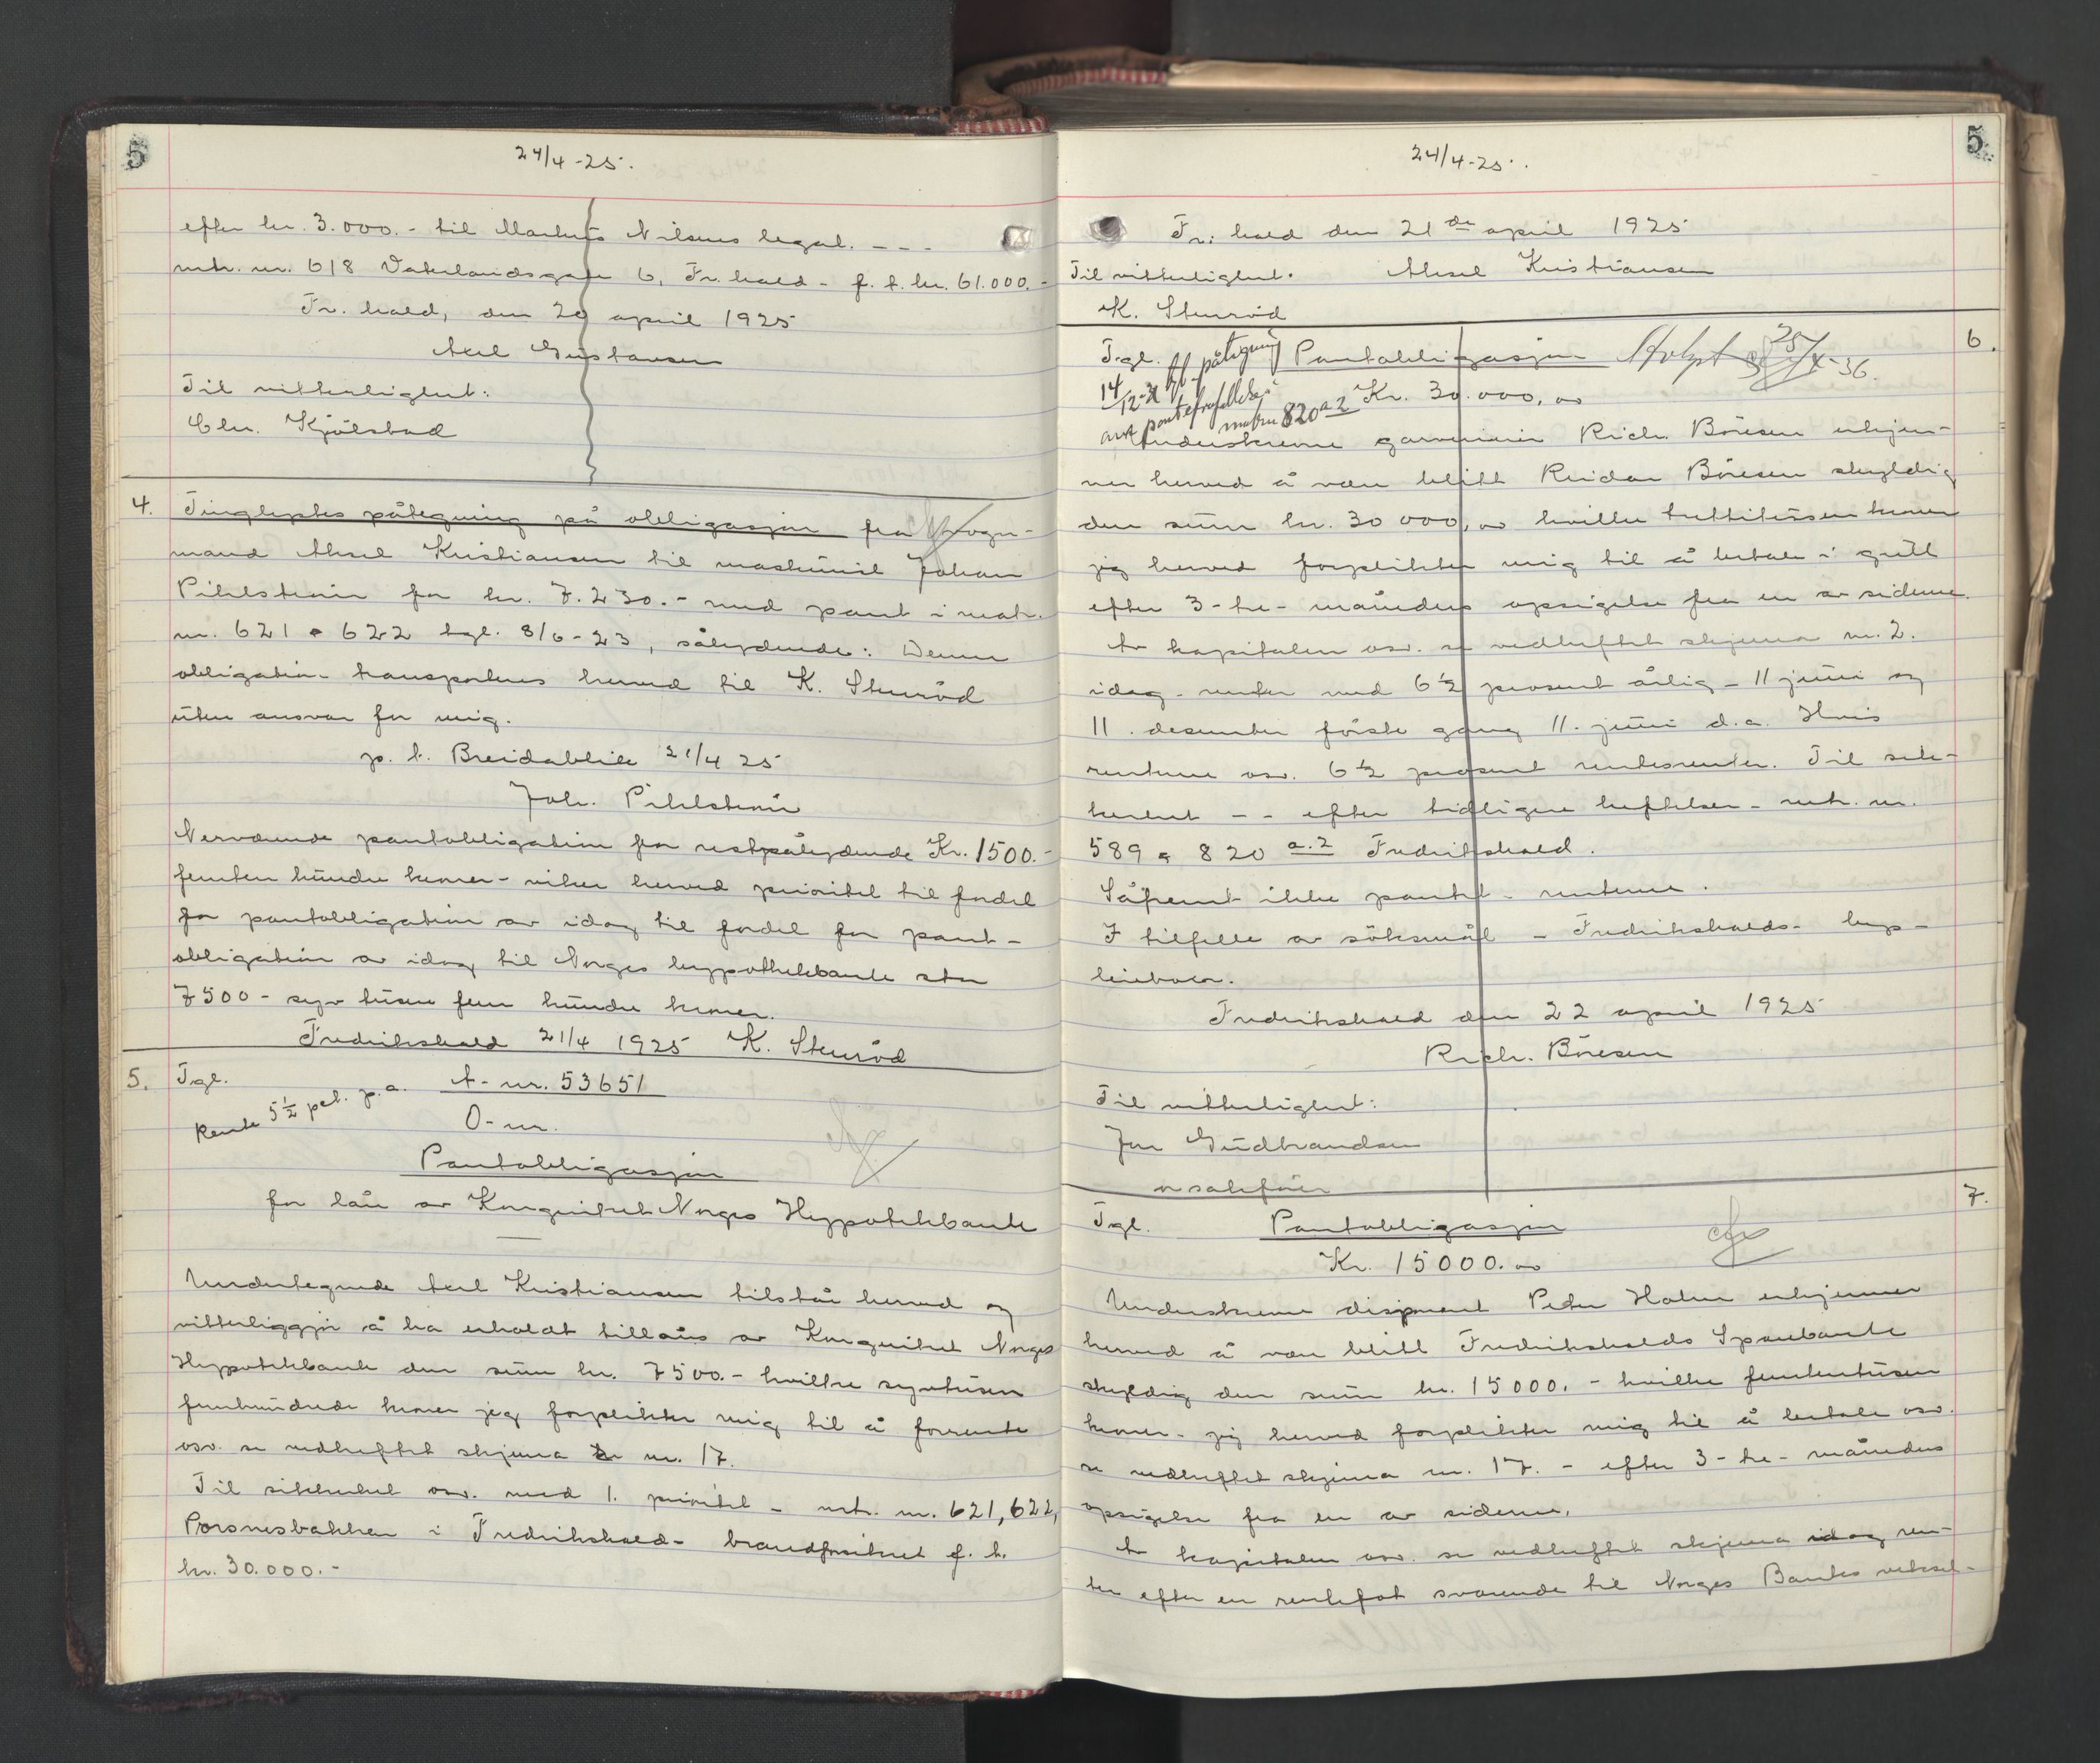 5
24/4-25.
efter kr. 3.000.- til Markus Nilsens legat. - - -
mtr. nr. 618 Vaterlandsgate 6, Fr.hald - f. t. kr. 61.000.-
Fr. hald, den 20 april 1925
Axel Gustavsen
Til vitterlighet:
Chr. Kjölstad
4. Tinglystes påtegning på obligasjon fra
mand Aksel Kristiansen til maskinist Johan
Pihlstrøm for kr. 7.230.- med pant i matr.
nr. 621 & 622 tgl. 8/6-23, sålydende: Denne
obligation transporteres herved til K. Stenröd
uten ansvar for mig.
p. t. Breidablik 21/4 25
Joh. Pihlstrøm
Nerværende pantobligation for restpålydende Kr. 1500.-
femten hundre kroner- viker herved prioritet til fordel
for pantobligation av idag til fordel for pant-
obligation av idag til Norges hypothekbank stor
7500 - syv tusen fem hundre kroner.
Fredrikshald 21/4 1925 K. Stenröd
5. Tgl.
Rente 5½ pct. p. a. A- nr. 53651
O- nr.
Pantobligasjon
for lån av Kongeriket Norges Hypotekbank
Undertegnede Axel Kristiansen tilstår herved og
vitterliggjør å ha erholdt tillåns av Kongeriket Norges
Hypotekbank den sum kr. 7500.- hvilke syvtusen
femhundrede kroner jeg forplikter mig til å forrente
osv. se vedheftet skjema nr. 17.
Til sikkerhet osv. med 1. prioritet - mtr. nr. 621, 622,
Porsnesbakken i Fredrikshald- brandforsikret f. t.
kr. 30.000.-
5
24/4-25.
Fr. hald den 21 de april 1925
Til vitterlighet. Aksel Kristiansen
K. Stenröd
6.
Tgl. Pantobligasjon Avlyst 25/4-36.
14/12-31 tgl. påtegning
ant pantefrafallelse
matr. 820 a 2
Kr. 30.000,oo
Underskrevne garverieier Rich. Böresen erkjen-
ner herved å være blitt Reidar Böresen skyldig
den sum kr. 30 000,oo hvilke trettitusen kroner
jeg herved forplikter mig til å betale i gull
efter 3-tre- måneders opsigelse fra en av sidene.
Av kapitalen osv. se vedheftet skjema nr. 2.
idag - renter med 6½ prosent årlig - 11 juni og
11. desember første gang 11. juni d.a. Hvis
rentene osv. 6½ prosent rentesrenter. Til sik-
kerhet - - efter tidligere heftelser - mtr. nr.
589 & 820 a.2 Fredrikshald.
Såfremt ikke pantet - rentene.
I tilfelle av söksmål - Fredrikshalds- hyp-
leieboer.
Fredrikshald den 22 april 1925
Rich. Böresen
Til vitterlighet:
Jon Gudbrandsen
o.r.sakfører
7.
Tgl. Pantobligasjon
Kr. 15000.oo
Underskrevne disponent Peter Holm erkjenner
herved å være blitt Fredrikshalds Sparebank
skyldig den sum kr. 15000.- hvilke femtentusen
kroner- jeg herved forplikter mig til å betale osv.
se vedheftet skjema nr. 17. - efter 3-tre- måneders
opsigelse fra en av sidene.
Av kapitalen osv. se vedheftet skjema idag ren-
ter efter en rentefot svarende til Norges Banks veksel-